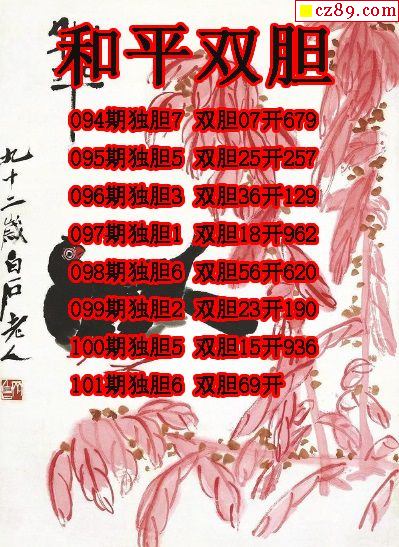 cz89.com
和平
和平双胆
094期独胆7 双胆07开679
095期独胆5 双胆25开257
096期独胆3 双胆36开129
097期独胆1 双胆18开962
098期独胆6 双胆56开620
099期独胆2 双胆23开190
100期独胆5 双胆15开936
101期独胆6 双胆69开
九十二岁白石老人